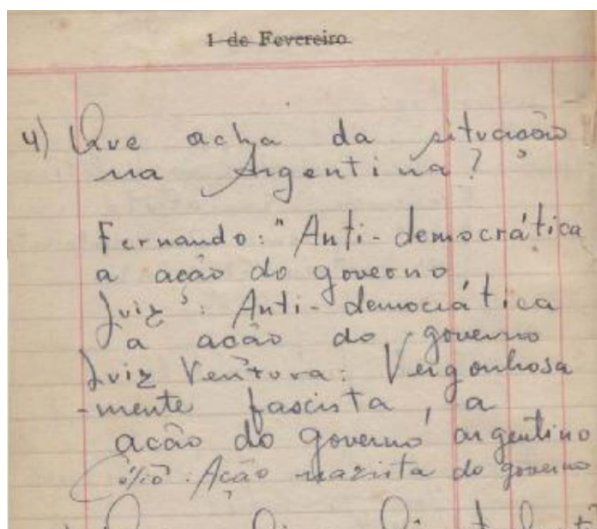 1 de Fevereiro
4) Que acha da situação
na Argentina?
Fernando: "Anti-democrática
a ação do governo
Luiz: Anti-democrática
a acão do governo
Luiz Ventura: Vergonhosa
-mente fascista, a
acão do governo argentino
Ação nazista do governo